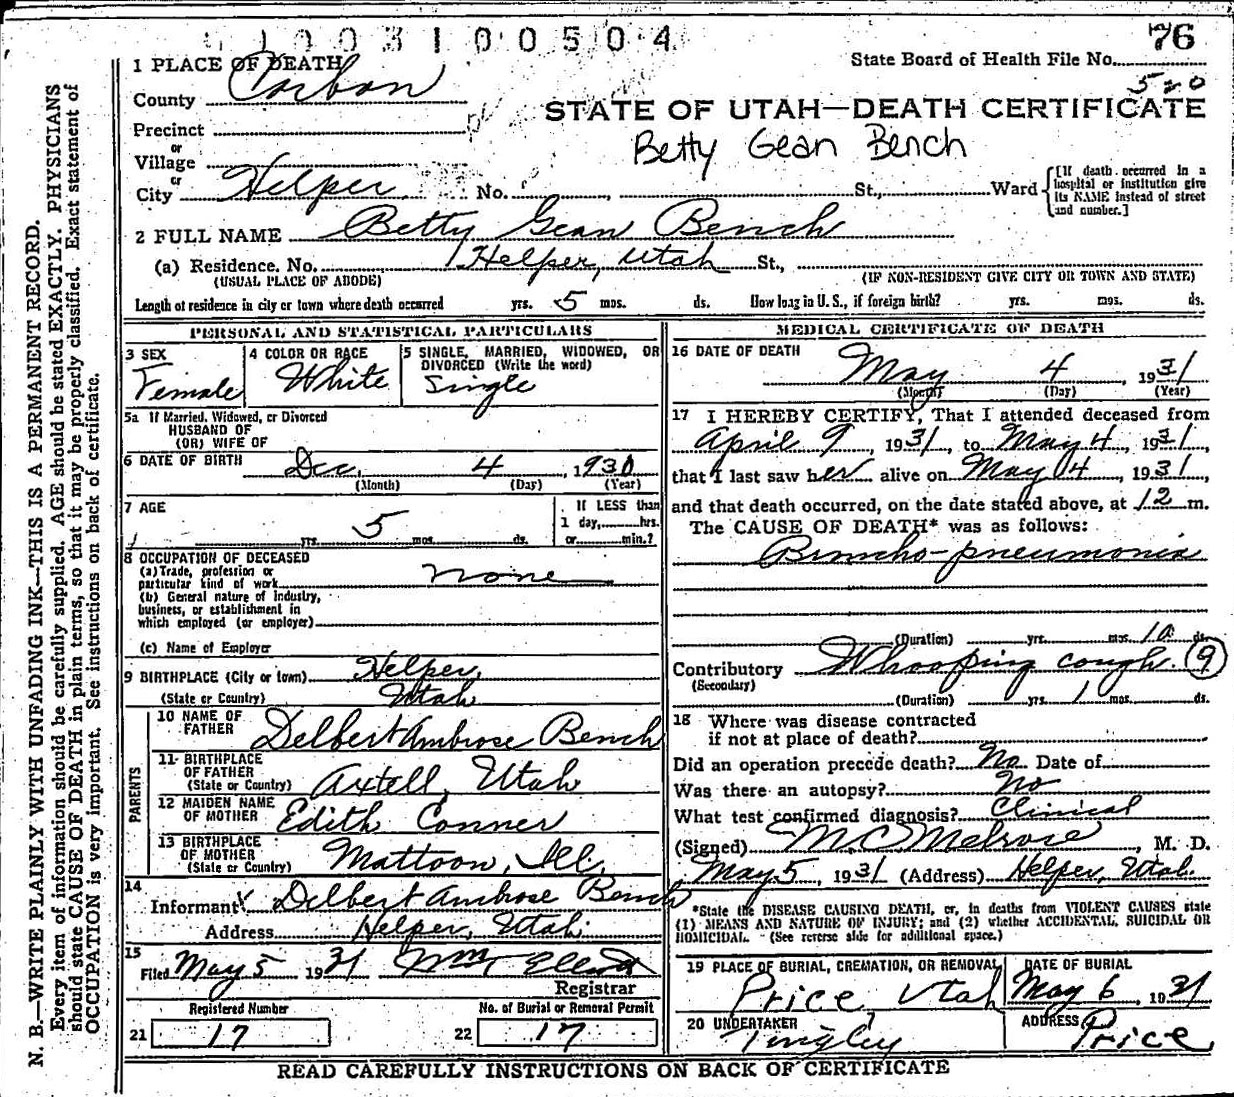 1003100504
76
State Board of Health File No.
520
1 PLACE OF DEATH
County Carbon
STATE OF UTAH—DEATH CERTIFICATE
Precinct
or
Village
Betty Gean Bench
or
City Helper No. St., Ward
[If death occurred in a hospital or institution give its NAME instead of street and number.]
2 FULL NAME Betty Gean Bench
(a) Residence. No. Helper, Utah St.,
(USUAL PLACE OF ABODE) (IF NON-RESIDENT GIVE CITY OR TOWN AND STATE)
Length of residence in city or town where death occurred yrs. 5 mos. ds. How long in U. S., if foreign birth? yrs. mos. ds.
PERSONAL AND STATISTICAL PARTICULARS
3 SEX
Female
4 COLOR OR RACE
White
5 SINGLE, MARRIED, WIDOWED, OR
DIVORCED (Write the word)
Single
5a If Married, Widowed, or Divorced
HUSBAND OF
(OR) WIFE OF
6 DATE OF BIRTH Dec. 4 1930
(Month) (Day) (Year)
7 AGE
yrs. 5 mos. ds.
If LESS than
1 day, hrs.
or min.?
8 OCCUPATION OF DECEASED
(a) Trade, profession or
particular kind of work none
(b) General nature of industry,
business, or establishment in
which employed (or employer)
(c) Name of Employer
9 BIRTHPLACE (City or town) Helper,
(State or Country) Utah
PARENTS
10 NAME OF
FATHER Delbert Ambrose Bench
11 BIRTHPLACE
OF FATHER
(State or Country) Axtell, Utah
12 MAIDEN NAME
OF MOTHER Edith Conner
13 BIRTHPLACE
OF MOTHER
(State or Country) Mattoon, Ill.
14
Informant x Delbert Ambrose Bench
Address Helper, Utah.
15
Filed May 5 1931 Wm. Elliott
Registrar
Registered Number
21 17
No. of Burial or Removal Permit
22 17
MEDICAL CERTIFICATE OF DEATH
16 DATE OF DEATH
May 4, 1931
(Month) (Day) (Year)
17 I HEREBY CERTIFY, That I attended deceased from
April 9, 1931, to May 4, 1931,
that I last saw her alive on May 4, 1931,
and that death occurred, on the date stated above, at 12 m.
The CAUSE OF DEATH* was as follows:
Broncho-pneumonia
(Duration) yrs. mos. 10 ds.
Contributory Whooping cough. 9
(Secondary)
(Duration) yrs. 1 mos. ds.
18 Where was disease contracted
if not at place of death?
Did an operation precede death? No Date of
Was there an autopsy? No
What test confirmed diagnosis? Clinical
(Signed) M. C. Melrose, M. D.
May 5, 1931 (Address) Helper, Utah.
*State the DISEASE CAUSING DEATH, or, in deaths from VIOLENT CAUSES state
(1) MEANS AND NATURE OF INJURY; and (2) whether ACCIDENTAL, SUICIDAL OR
HOMICIDAL. (See reverse side for additional space.)
19 PLACE OF BURIAL, CREMATION, OR REMOVAL
Price, Utah
DATE OF BURIAL
May 6, 1931
20 UNDERTAKER
Tingley
ADDRESS
Price
READ CAREFULLY INSTRUCTIONS ON BACK OF CERTIFICATE
N. B.—WRITE PLAINLY WITH UNFADING INK—THIS IS A PERMANENT RECORD.
Every item of information should be carefully supplied. AGE should be stated EXACTLY. PHYSICIANS
should state CAUSE OF DEATH in plain terms, so that it may be properly classified. Exact statement of
OCCUPATION is very important. See instructions on back of certificate.